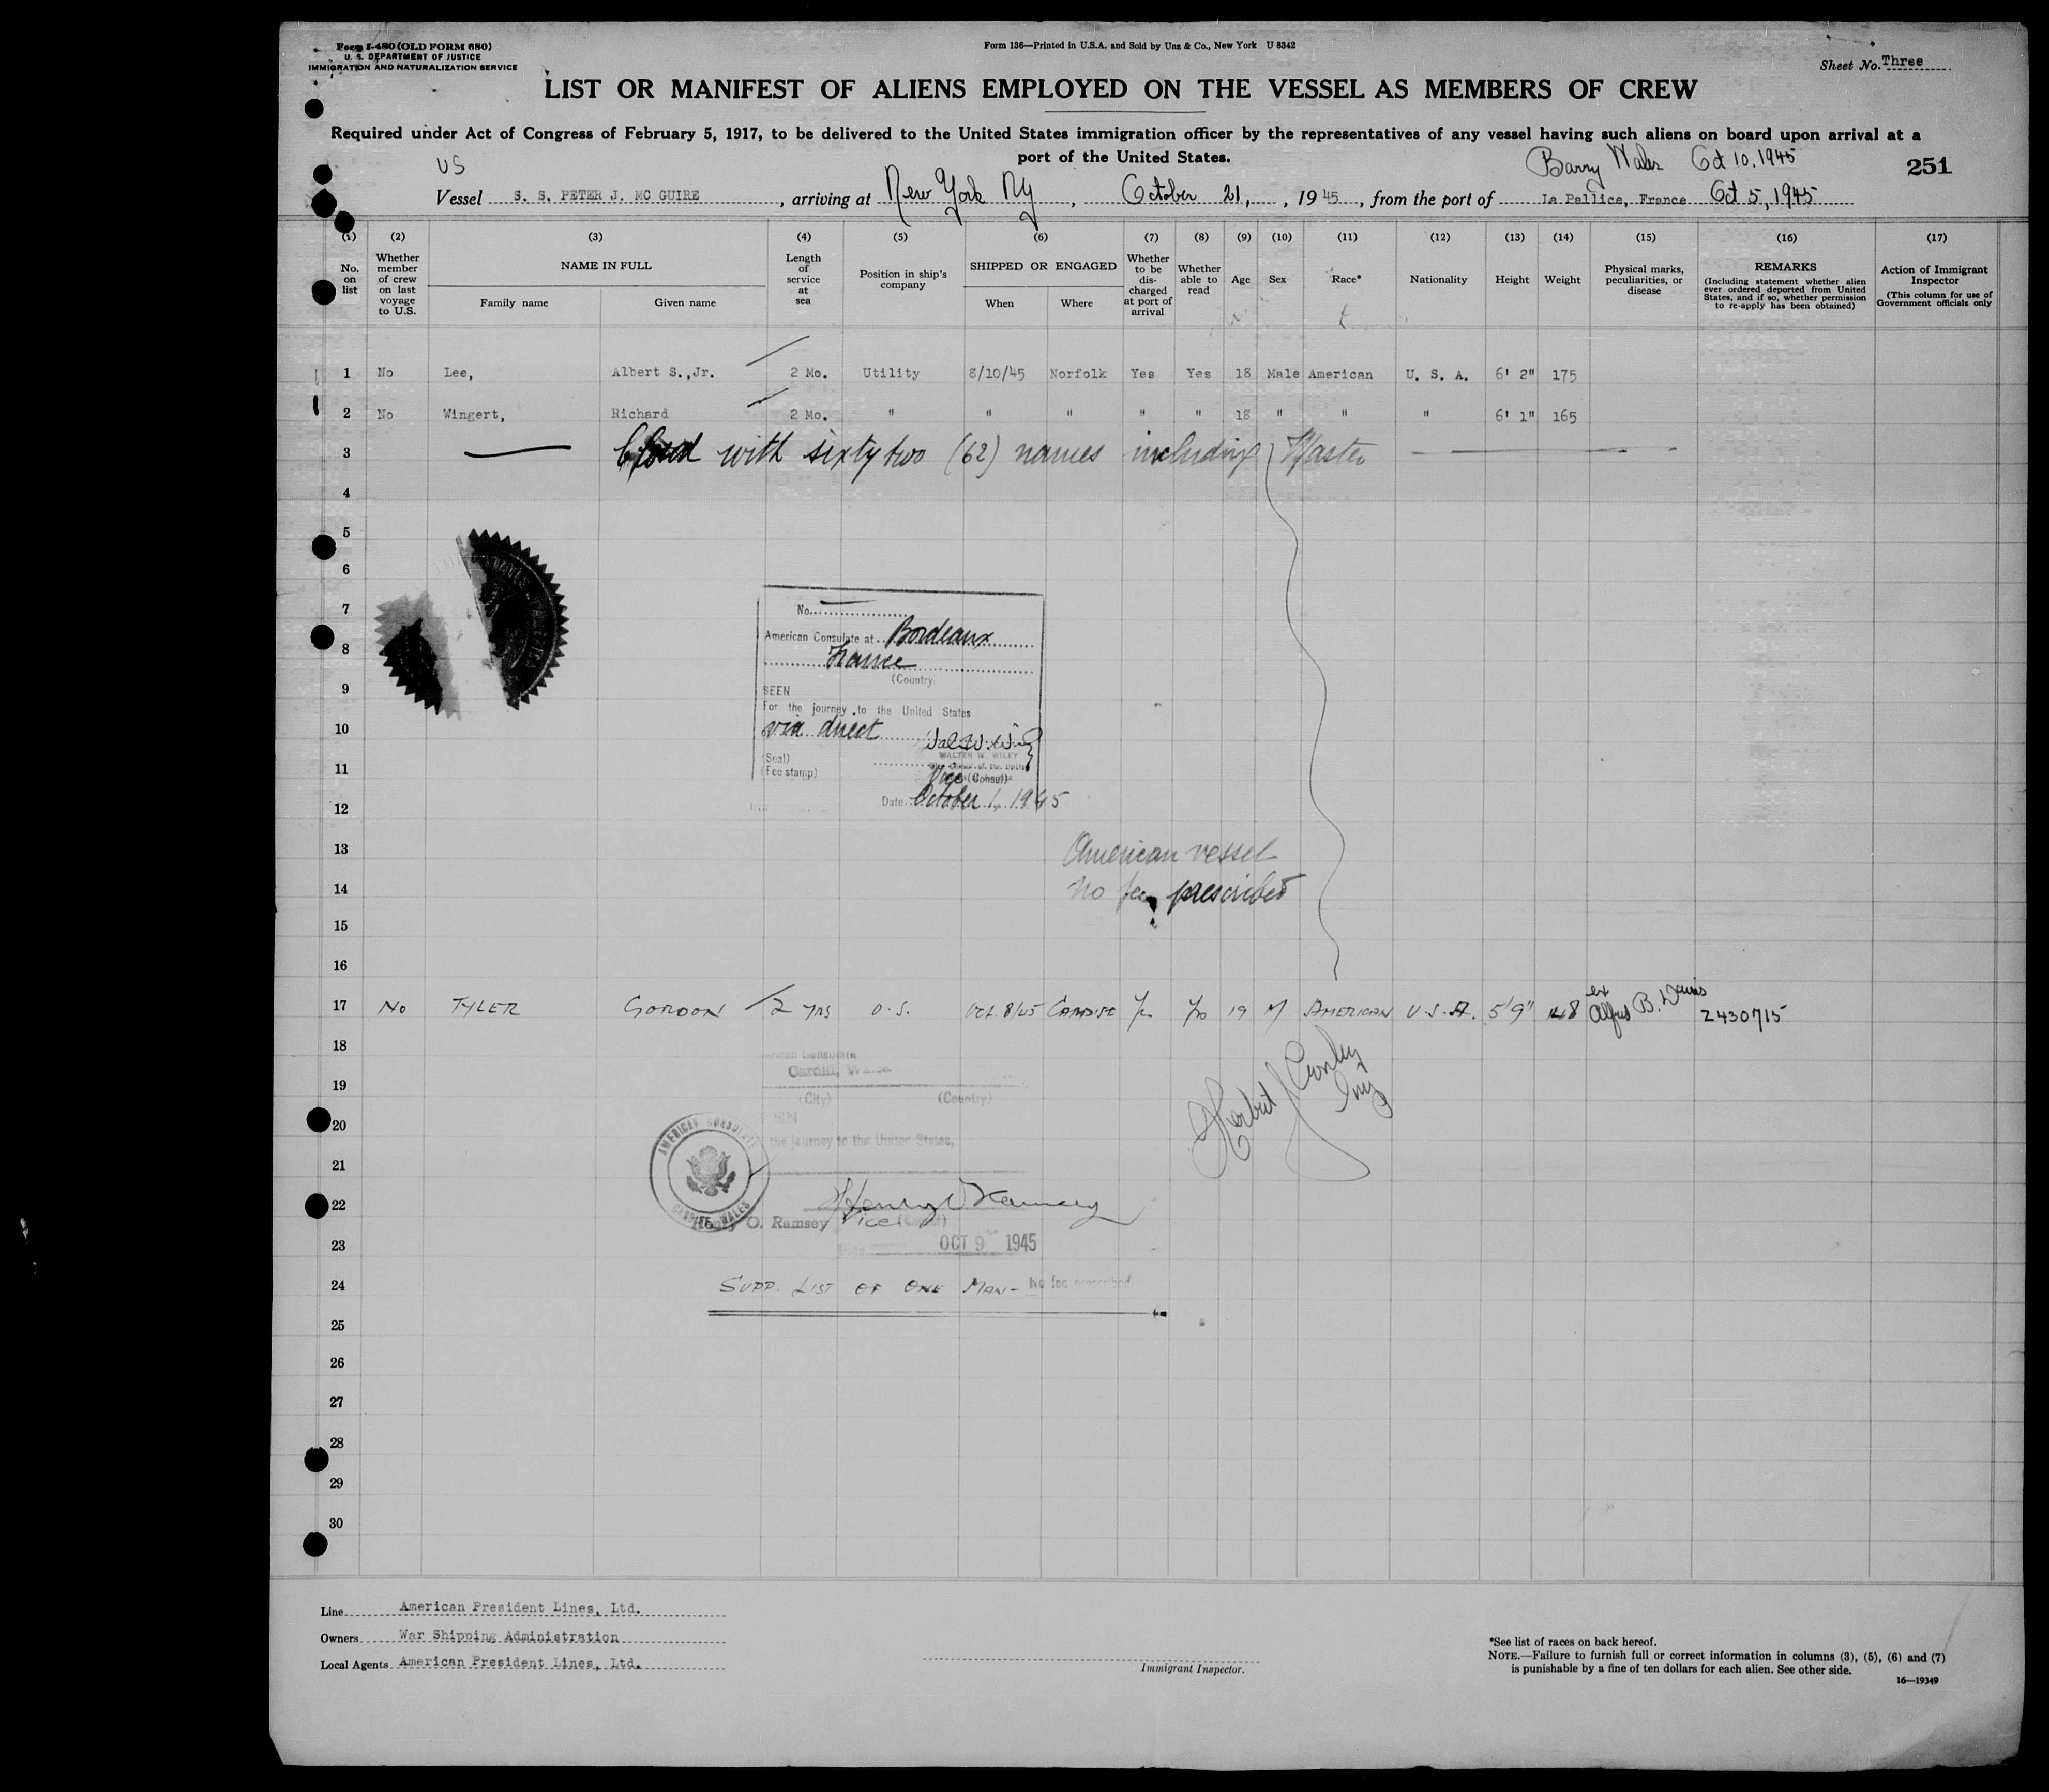 Form I-480 (OLD FORM 680)
U. S. DEPARTMENT OF JUSTICE
IMMIGRATION AND NATURALIZATION SERVICE
Form 136—Printed in U.S.A. and Sold by Unz & Co., New York U 8342
Sheet No. Three
LIST OR MANIFEST OF ALIENS EMPLOYED ON THE VESSEL AS MEMBERS OF CREW
Required under Act of Congress of February 5, 1917, to be delivered to the United States immigration officer by the representatives of any vessel having such aliens on board upon arrival at a
port of the United States.
US
Barry Wales Oct 10, 1945
251
Vessel S. S. PETER J. MC GUIRE, arriving at New York NY, October 21, 1945, from the port of La Pallice, France Oct 5, 1945
(1) (2) (3) (4) (5) (6) (7) (8) (9) (10) (11) (12) (13) (14) (15) (16) (17)
No. on list
Whether member of crew on last voyage to U.S.
NAME IN FULL
Family name
Given name
Length of service at sea
Position in ship's company
SHIPPED OR ENGAGED
When
Where
Whether to be discharged at port of arrival
Whether able to read
Age
Sex
Race*
Nationality
Height
Weight
Physical marks, peculiarities, or disease
REMARKS
(Including statement whether alien ever ordered deported from United States, and if so, whether permission to re-apply has been obtained)
Action of Immigrant Inspector
(This column for use of Government officials only
1 No Lee, Albert S.,Jr. 2 Mo. Utility 8/10/45 Norfolk Yes Yes 18 Male American U. S. A. 6' 2" 175
2 No Wingert, Richard 2 Mo. " " " " " 18 " " " 6' 1" 165
3 Closed with sixty two (62) names including Master
4
5
6
7
No.
American Consulate at Bordeaux
8
France
(Country)
9
SEEN
For the journey to the United States
10
via direct
WALTER W. WILEY
(Seal)
11
(Fee stamp)
Vice (Consul)
Date October 1, 1945
12
13 American vessel
14 No fee prescribed
15
16
17 No TYLER GORDON 2 YRS O.S. OCT. 8/45 CARDIFF 19 M AMERICAN U.S.A. 5'9" 148 ex Alfred B. 2430715
18
Cardiff, Wales
19
(City) (Country)
Herbert J Conley
20
the journey to the United States,
AMERICAN CONSULATE
CARDIFF, WALES
21
22
Henry O. Ramsey Vice (Consul)
23
OCT 9 1945
24 SUPP. LIST OF ONE MAN- No fee prescribed
25
26
27
28
29
30
Line American President Lines, Ltd.
Owners War Shipping Administration
Local Agents American President Lines, Ltd.
Immigrant Inspector.
*See list of races on back hereof.
NOTE.—Failure to furnish full or correct information in columns (3), (5), (6) and (7)
is punishable by a fine of ten dollars for each alien. See other side.
16—19349